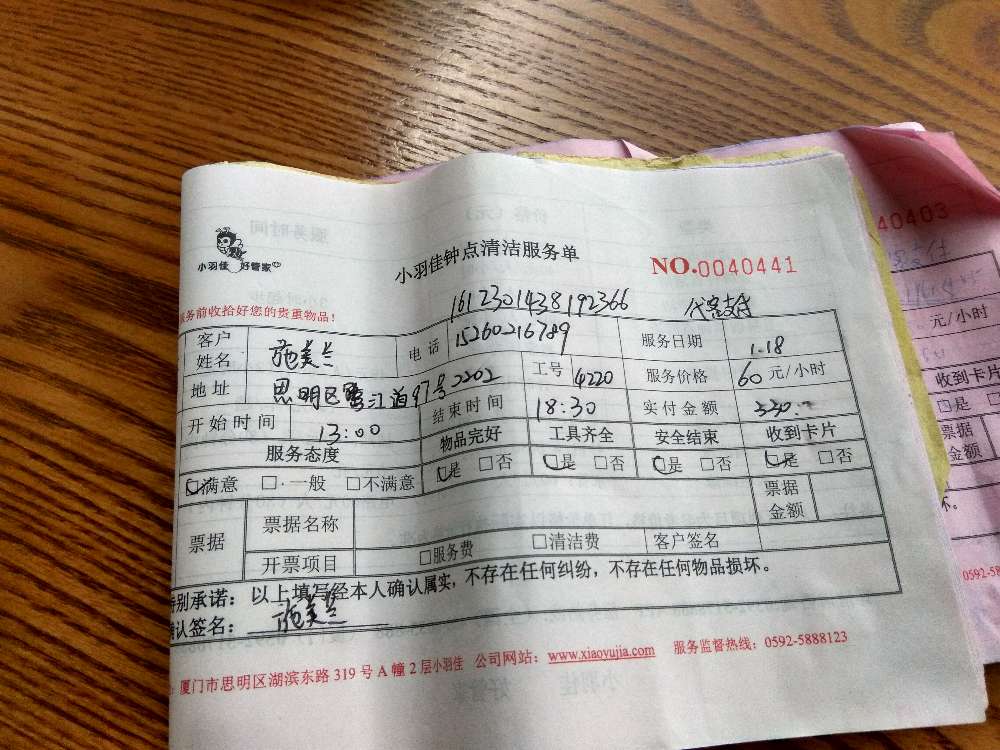 小羽佳 好管家
小羽佳钟点清洁服务单
NO.0040441
服务前收拾好您的贵重物品!
1612301438192366 代客支付
客户姓名 施美兰 电话 15260216789 服务日期 1.18
地址 思明区鹭江道97号2202 工号 4220 服务价格 60元/小时
开始时间 13:00 结束时间 18:30 实付金额 330.
服务态度 物品完好 工具齐全 安全结束 收到卡片
□满意 □一般 □不满意 □是 □否 □是 □否 □是 □否 □是 □否
票据 票据名称 票据金额
开票项目 □服务费 □清洁费 客户签名
特别承诺:以上填写经本人确认属实,不存在任何纠纷,不存在任何物品损坏。
确认签名: 施美兰
厦门市思明区湖滨东路319号A幢2层小羽佳 公司网站:www.xiaoyujia.com 服务监督热线:0592-5888123
40403
元/小时
收到卡片
□是
票据金额
0592-58